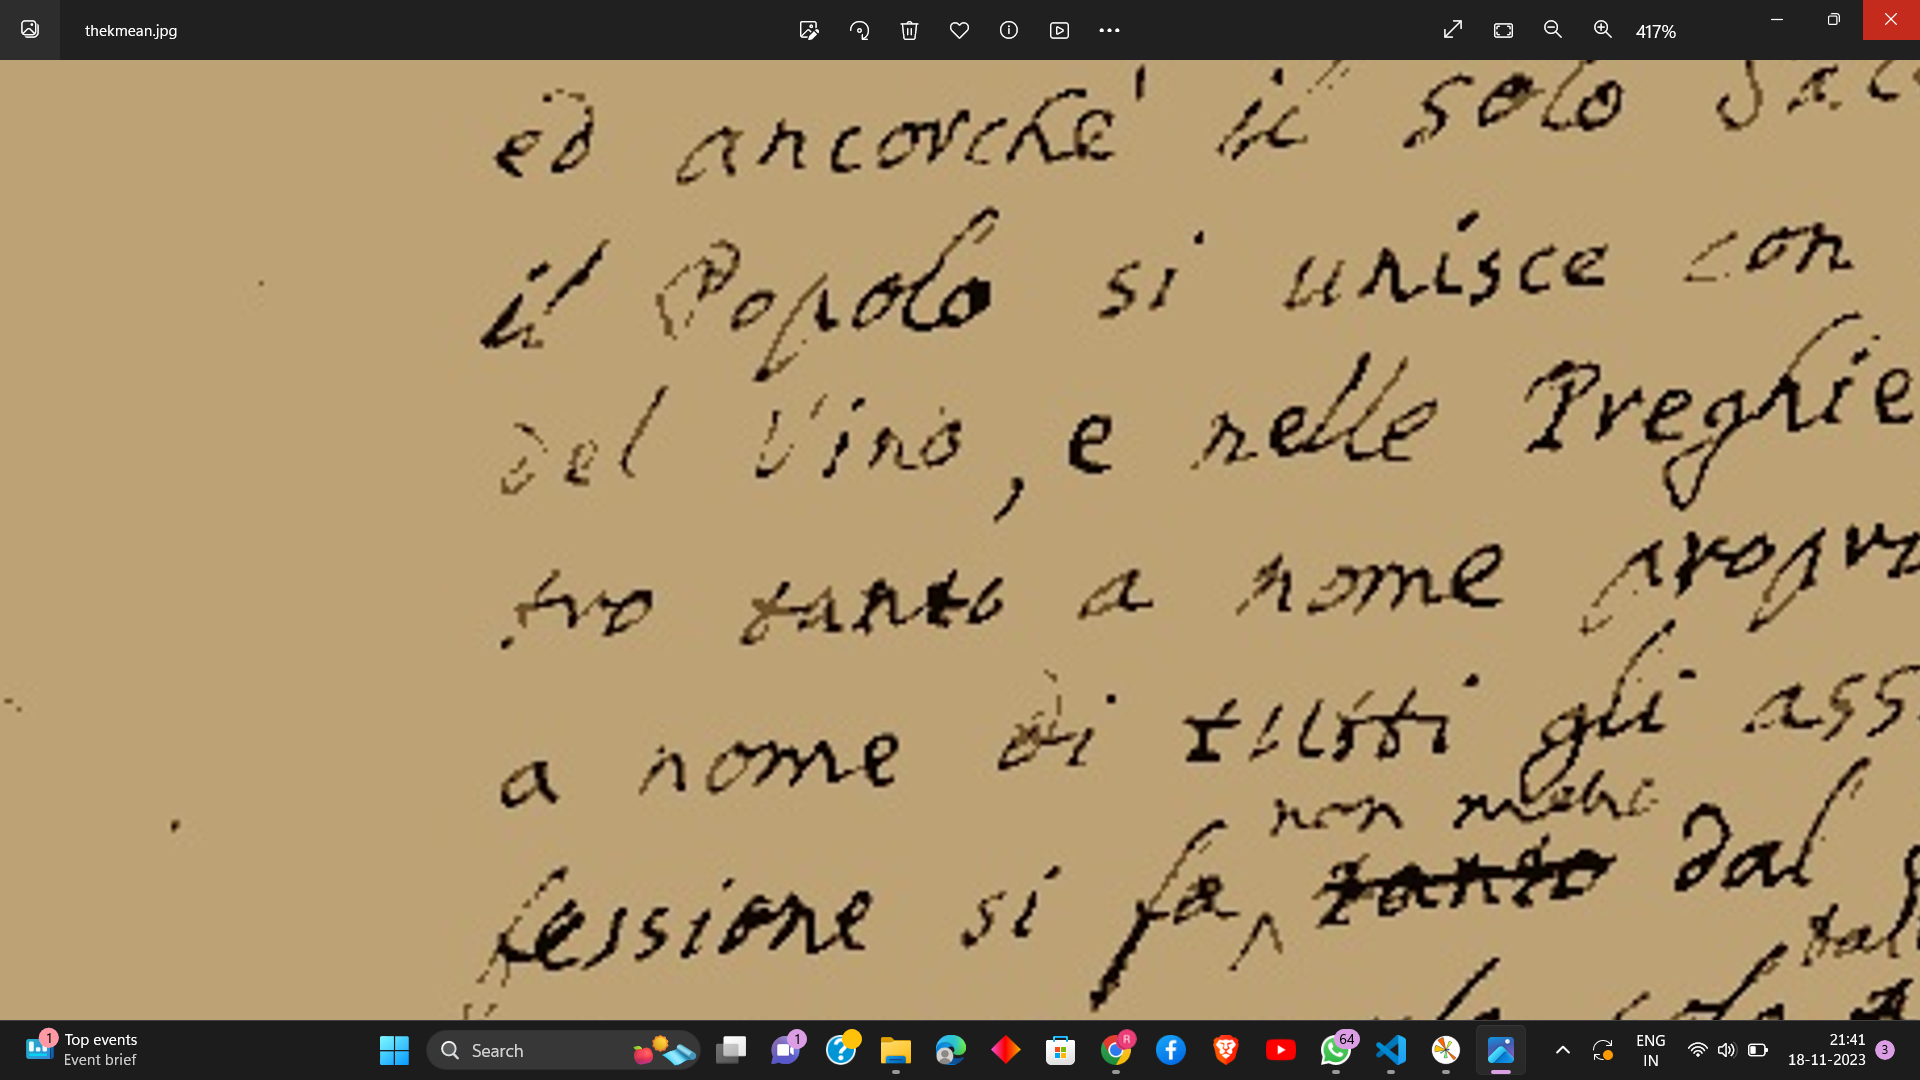 thekmean.jpg
417%
ed ancorché il solo Sac
il Popolo si unisce con
del Vino, e nelle Preghie
tro tanto a nome propr
a nome di tutti gli ass
non meno
fessione si fa ^ tanto dal
tal
Top events
Event brief
1
Search
1
R
64
ENG
IN
21:41
18-11-2023
3